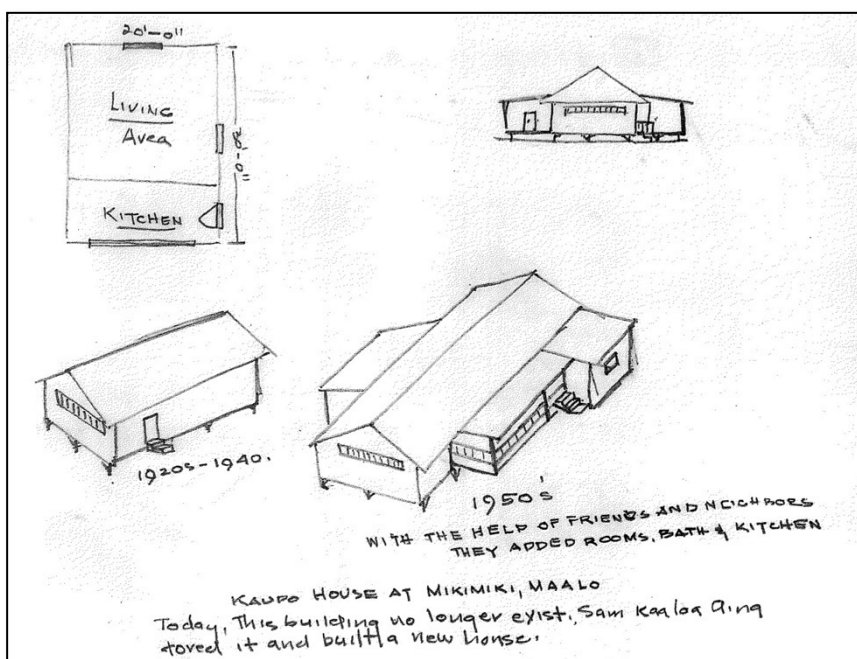 20'-0"
LIVING
Area
30'-0"
KITCHEN
1920s-1940.
1950's
WITH THE HELP OF FRIENDS AND NEIGHBORS
THEY ADDED ROOMS, BATH & KITCHEN
KAUPO HOUSE AT MIKIMIKI, MAALO
Today, This building no longer exist, Sam Kaaloa Aing
tored it and built a new house.